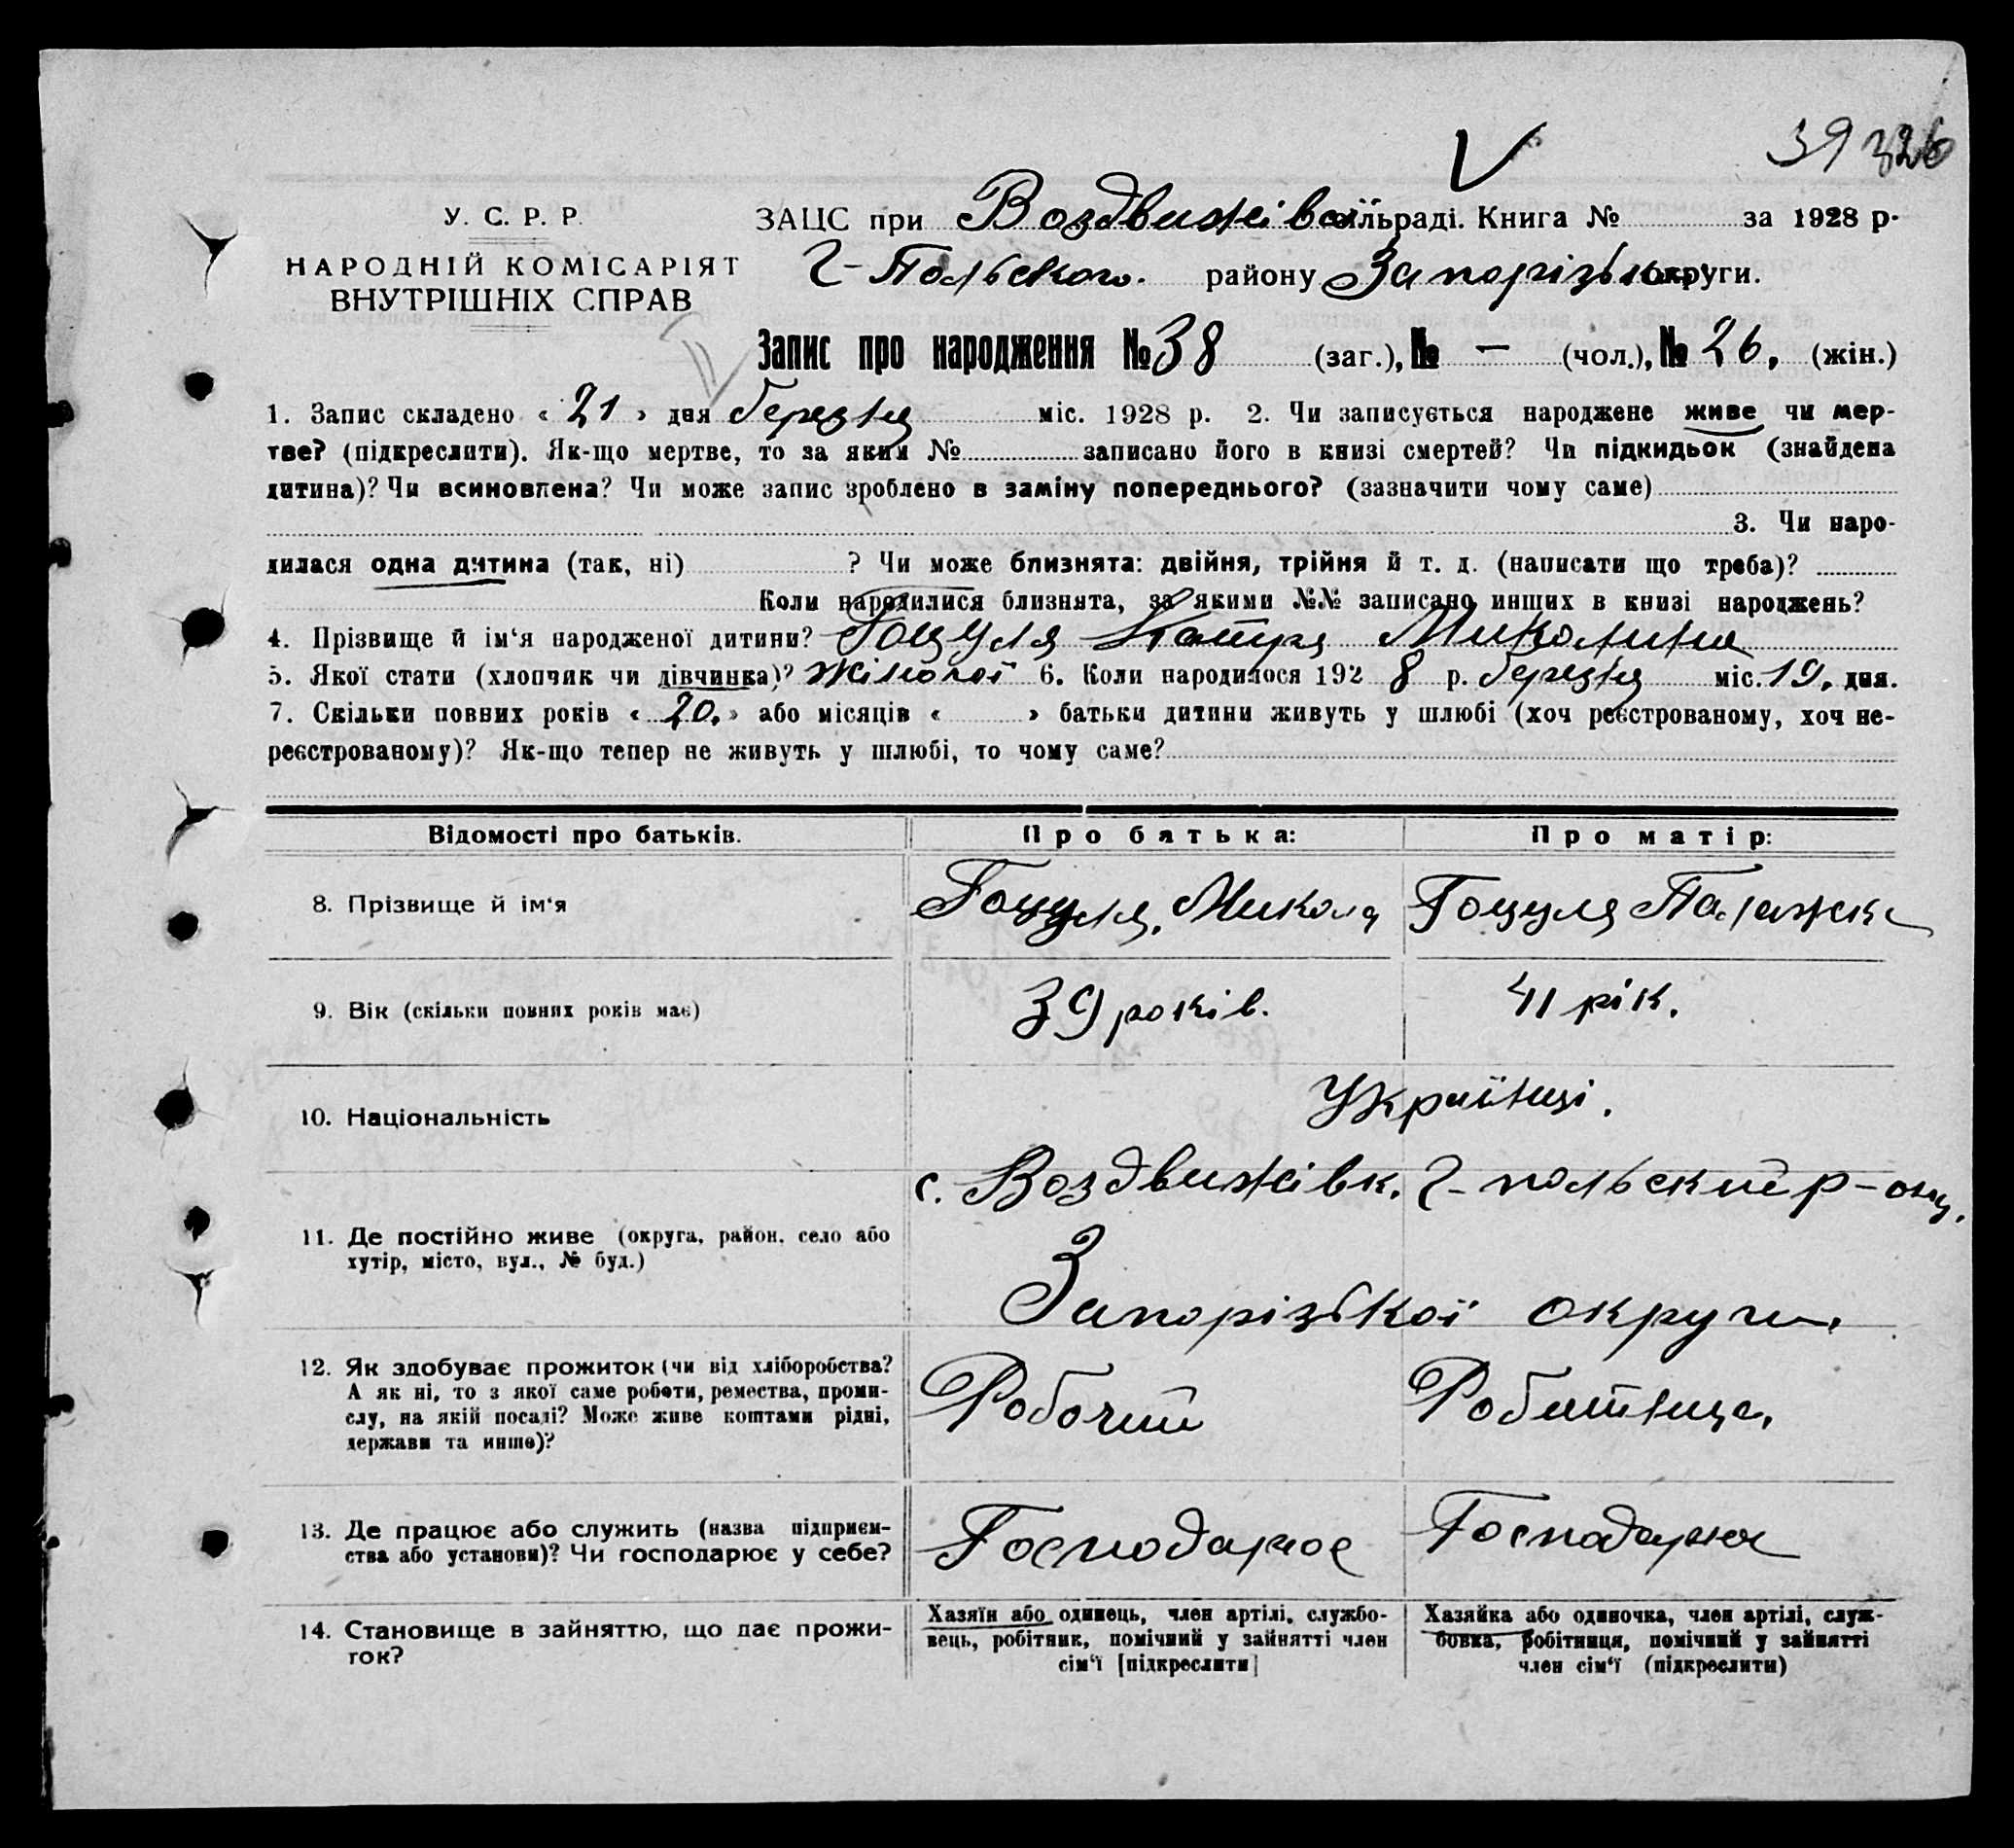 39 326
У. С. Р. Р.
НАРОДНІЙ КОМІСАРІЯТ
ВНУТРІШНІХ СПРАВ
ЗАЦС при Воздвижівсільраді. Книга № за 1928 р.
Г-Польского. району Запорізької округи.
Запис про народження № 38 (заг.), № – (чол.), № 26. (жін.)
1. Запис складено « 21 » дня березня міс. 1928 р. 2. Чи записується народжене живе чи мер-
тве? (підкреслити). Як-що мертве, то за яким № записано його в книзі смертей? Чи підкидьок (знайдена
дитина)? Чи всиновлена? Чи може запис зроблено в заміну попереднього? (зазначити чому саме)
3. Чи наро-
дилася одна дитина (так, ні) ? Чи може близнята: двійня, трійня й т. д. (написати що треба)?
Коли народилися близнята, за якими №№ записано инших в книзі народжень?
4. Прізвище й ім‘я народженої дитини? Гоцуля Мотря Миколина
5. Якої стати (хлопчик чи дівчинка)? жіночої 6. Коли народилося 192 8 р. березня міс. 19. дня.
7. Скільки повних років « 20. » або місяців « » батьки дитини живуть у шлюбі (хоч реєстрованому, хоч не-
реєстрованому)? Як-що тепер не живуть у шлюбі, то чому саме?
Відомості про батьків. Про батька: Про матір:
8. Прізвище й ім‘я Гоцуля, Микола Гоцуля Палажка
9. Вік (скільки повних років має) 39 років. 41 рік.
10. Національність Українці.
с. Воздвижівк. Г-польский р-он,
11. Де постійно живе (округа, район, село або
хутір, місто, вул., № буд.)
Запорізької округи.
12. Як здобуває прожиток (чи від хліборобства?
А як ні, то з якої саме роботи, ремества, проми-
слу, на якій посаді? Може живе коштами рідні,
держави та инше)?
Робочий Робитниця,
13. Де працює або служить (назва підприєм-
ства або установи)? Чи господарює у себе?
Господарює Господарка
14. Становище в зайняттю, що дає прожи-
ток?
Хазяїн або одинець, член артілі, службо-
вець, робітник, помічний у зайнятті член
сім‘ї [підкреслити]
Хазяйка або одиночка, член артілі, служ-
бовка, робітниця, помічний у зайнятті
член сім‘ї (підкреслити)